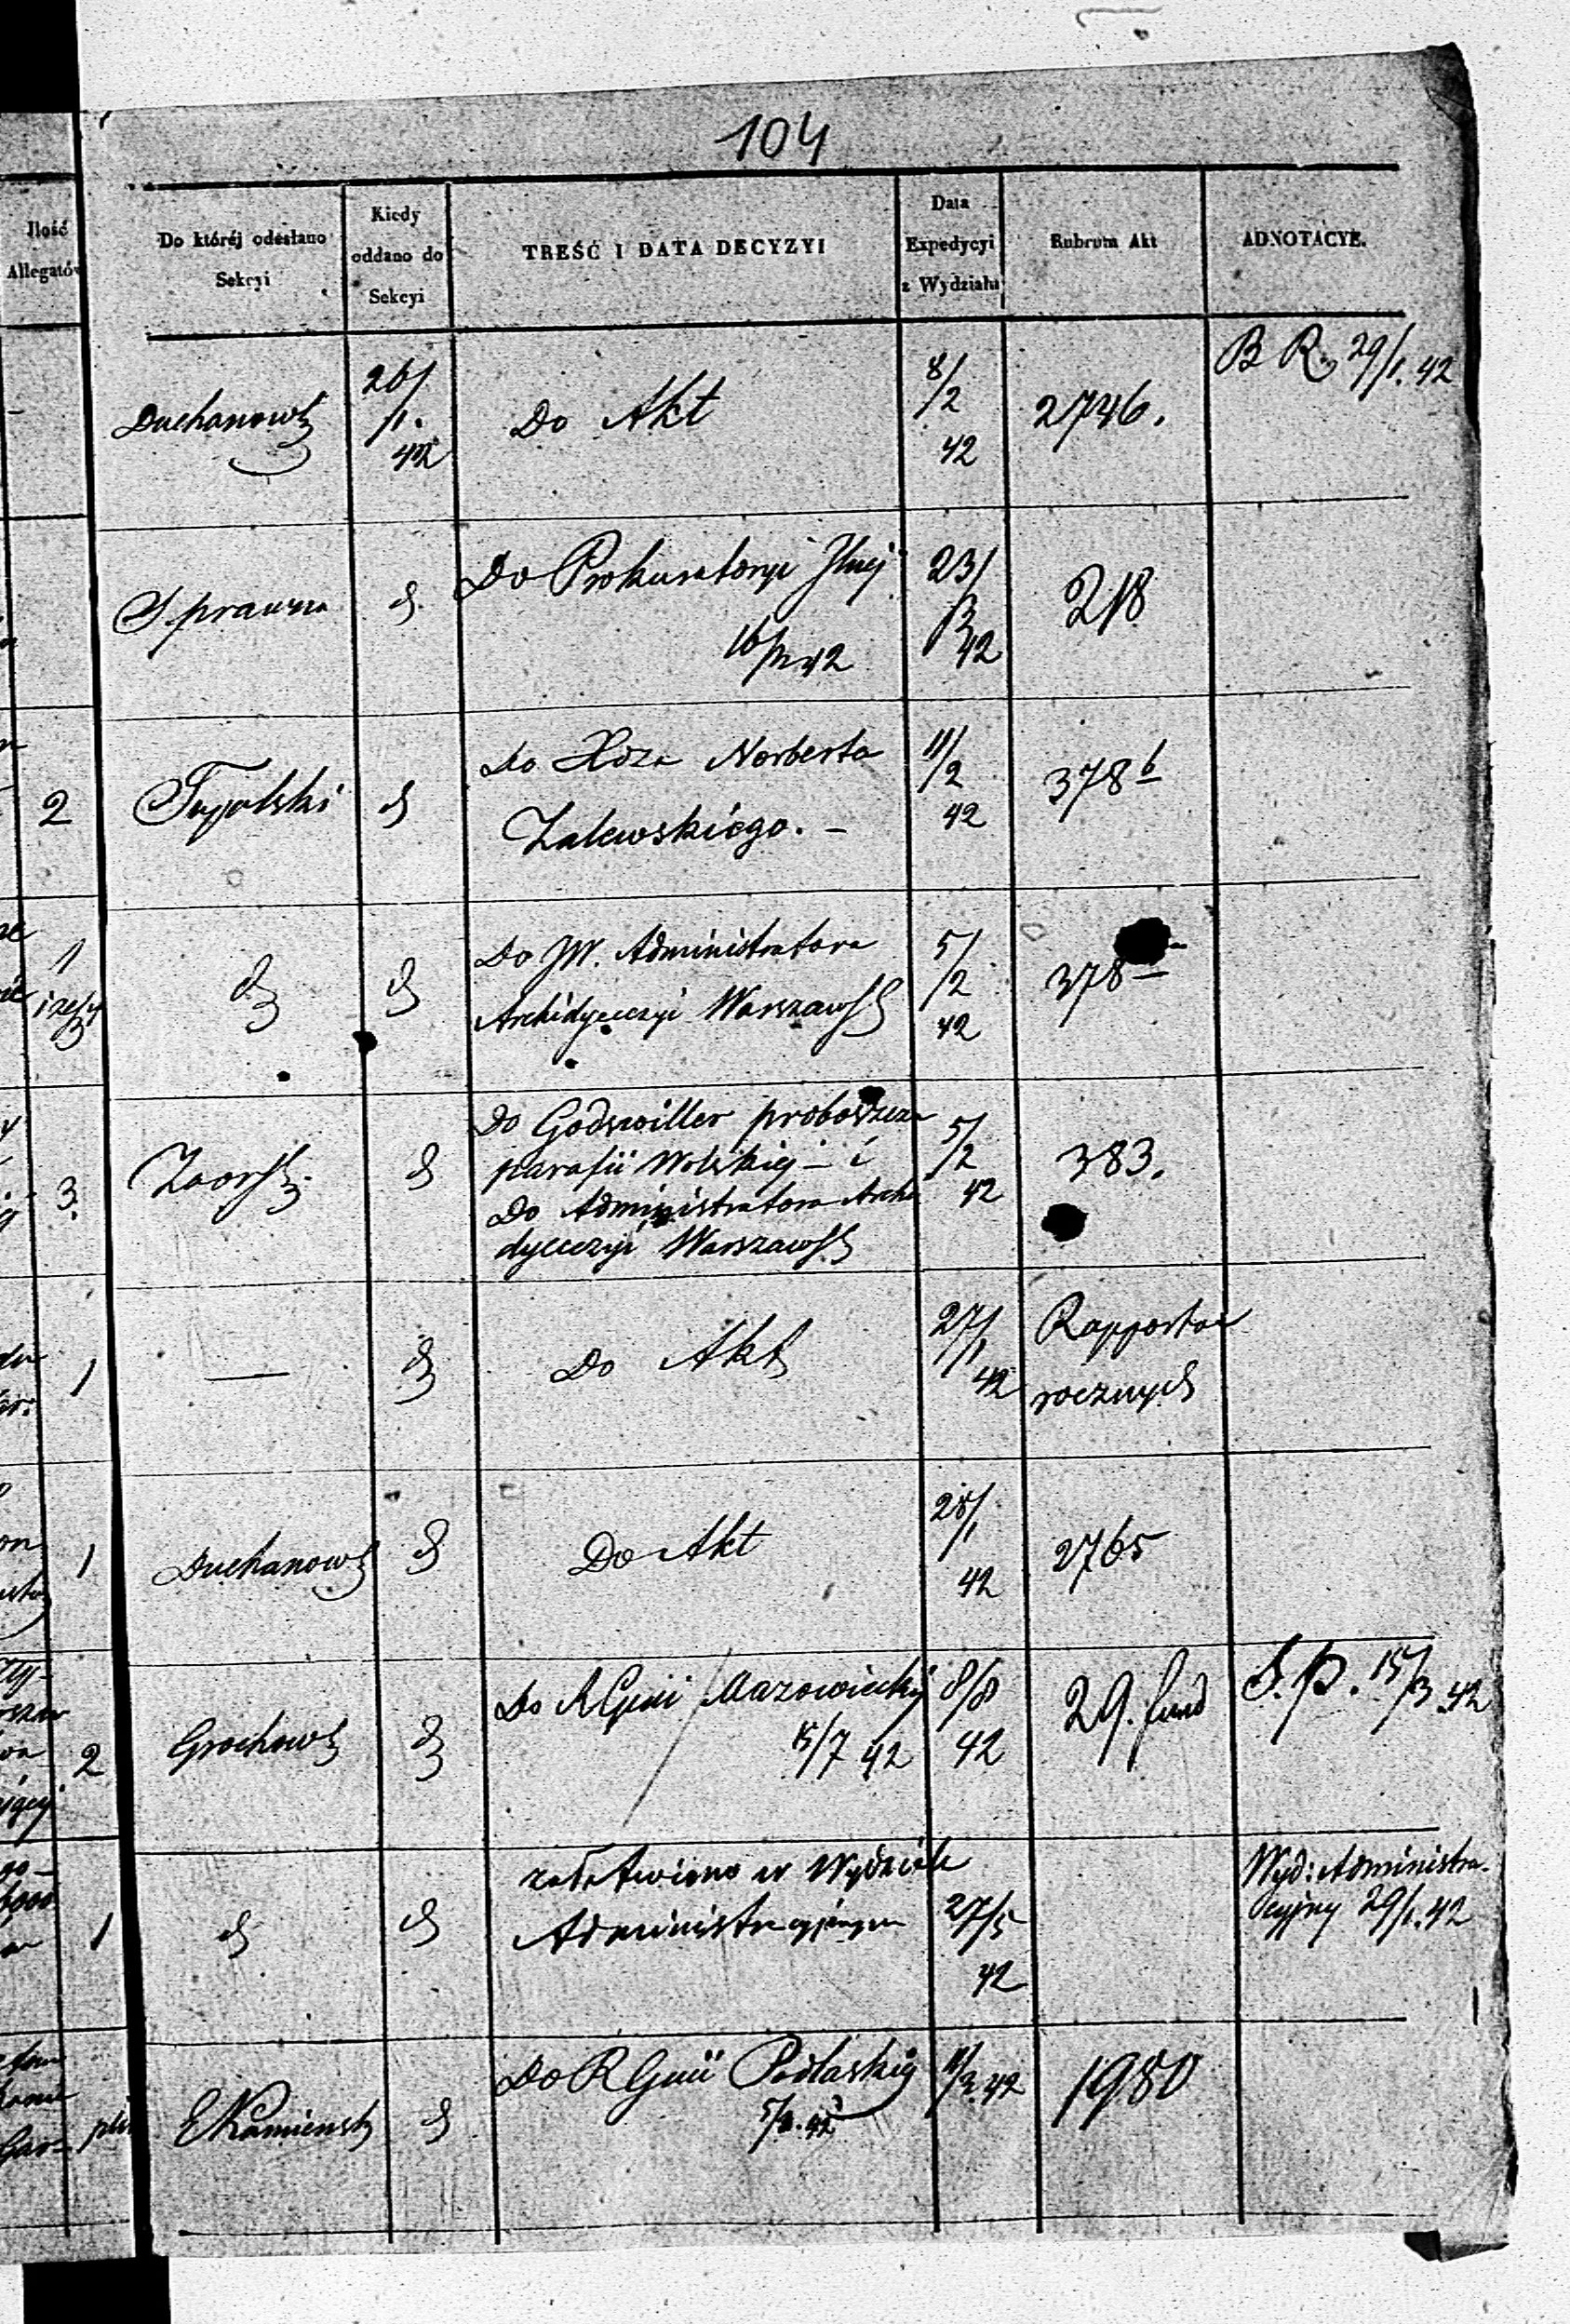 104
Ilość
Allegatów
Do któréj odesłano
Sekcyi
Kiedy
oddano do
Sekcyi
TREŚĆ I DATA DECYZYI
Data
Expedycyi
z Wydziału
Rubrum Akt
ADNOTACYE.
Duchanows
26/
/1.
42
Do Akt
8/
/2
42
2746.
B R. 29/1. 42
Sprawna
d
Do Prokuratoryi
16/ 42
23/
42
218
2
Tupalski
d
Do Xdza Norberta
Zalewskiego. –
11/
/2
42
378 b
1
d
d
Do JW. Administratora
Archidyecezyi Warszaws
5/
/2
42
378
3.
Zaors
d
Do Godswiller proboszcza
parafii Wolskiej – i
Do Administratora Archi
dyecezyi Warszaws
5/
/2
42
383.
1
—
d
Do Akt
27/
/1
42
Rapportow
rocznych
1
Duchanows
d
Do Akt
28/
/1
42
2765
2
Grochows
d
Do RGuii Mazowieckiej
15/7 42
8/8
42
29. fund
S. p. 15/3 42
1
d
d
załatwiono w Wydziale
Administracyjnym
27/5
42
Wyd: Administra-
cyjny 29/1. 42
EKamiensk
d
Do RGuii Podlaskiej
5/2. 42
11/2 42
1980